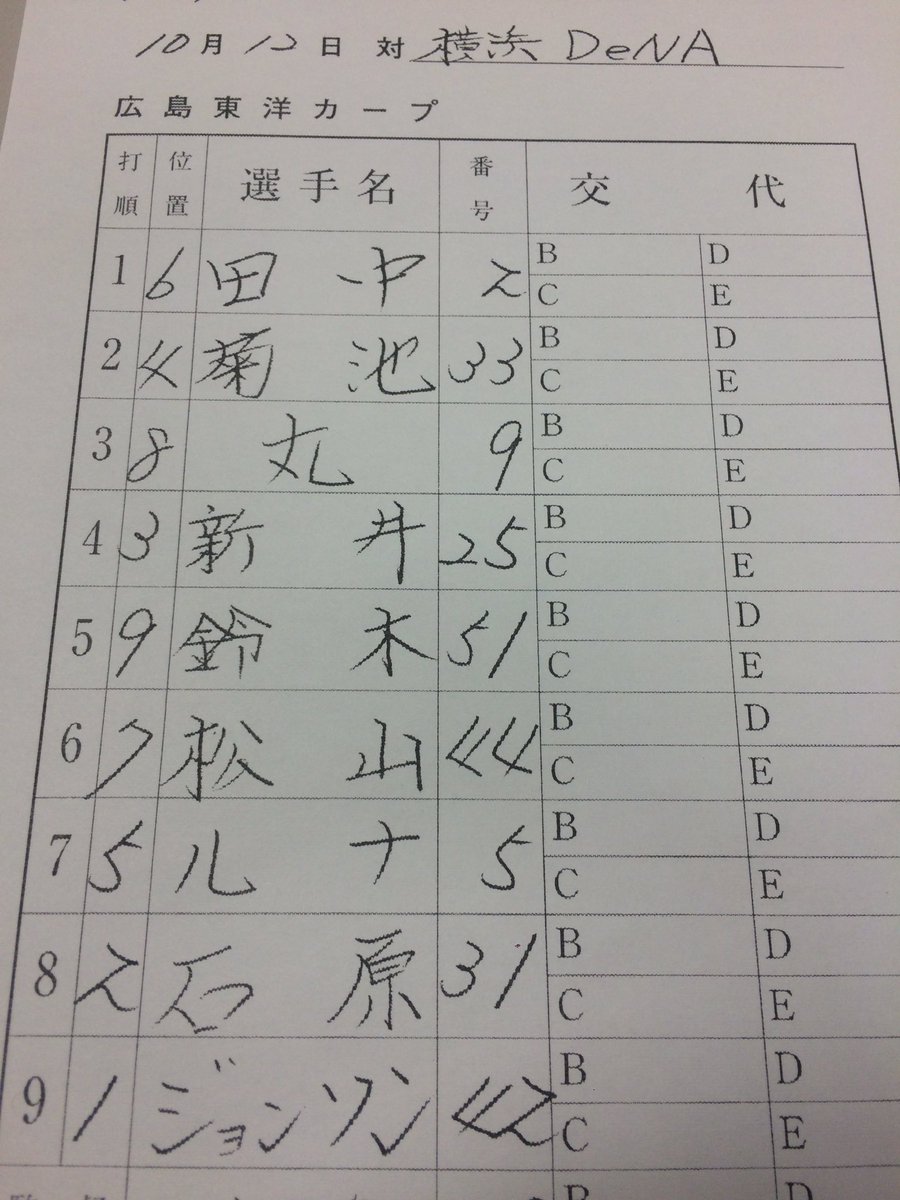 10月12日 対 横浜 DeNA
広島東洋カープ
打順 位置 選手名 番号 交代
1 6 田中 2 B D
C E
2 4 菊池 33 B D
C E
3 8 丸 9 B D
C E
4 3 新井 25 B D
C E
5 9 鈴木 51 B D
C E
6 7 松山 44 B D
C E
7 5 ルナ 5 B D
C E
8 2 石原 31 B D
C E
9 1 ジョンソン 42 B D
C E
B D